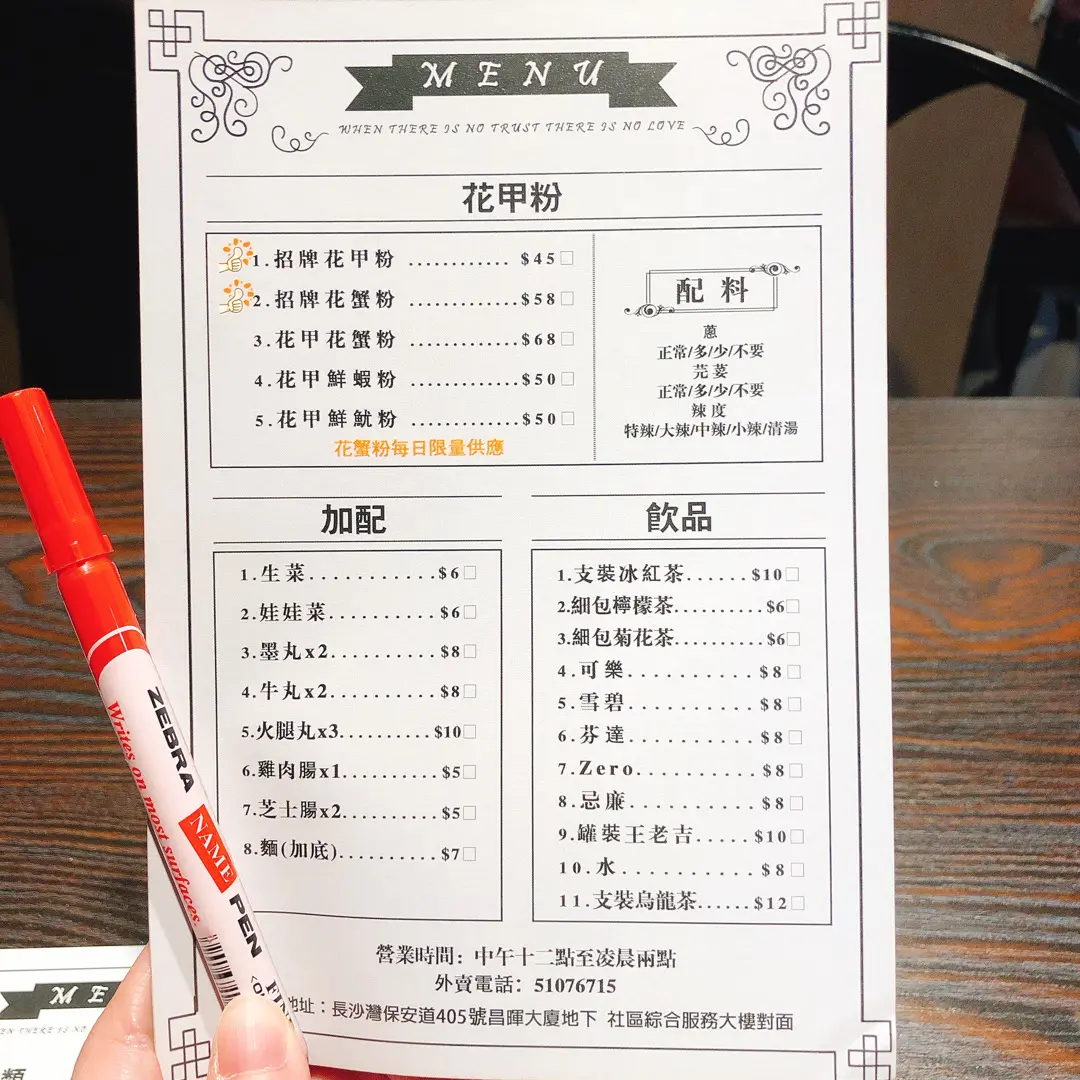 MENU
WHEN THERE IS NO TRUST THERE IS NO LOVE
花甲粉
1.招牌花甲粉 ............ $45
2.招牌花蟹粉 .............$58
3.花甲花蟹粉 .............$68
4.花甲鮮蝦粉 .............$50
5.花甲鮮魷粉 .............$50
花蟹粉每日限量供應
配料
蔥
正常/多/少/不要
芫荽
正常/多/少/不要
辣度
特辣/大辣/中辣/小辣/清湯
加配
1.生菜...........$6
2.娃娃菜..........$6
3.墨丸x2..........$8
4.牛丸x2..........$8
5.火腿丸x3.........$10
6.雞肉腸x1.........$5
7.芝士腸x2.........$5
8.麵(加底).........$7
飲品
1.支裝冰紅茶......$10
2.細包檸檬茶..........$6
3.細包菊花茶..........$6
4.可樂..........$8
5.雪碧..........$8
6.芬達..........$8
7.Zero..........$8
8.忌廉..........$8
9.罐裝王老吉.....$10
10.水...........$8
11.支裝烏龍茶......$12
營業時間：中午十二點至凌晨兩點
外賣電話：51076715
地址：長沙灣保安道405號昌暉大廈地下 社區綜合服務大樓對面
ZEBRA NAME PEN
Writes on most surfaces
FIN
ME
EN THERE IS NO
類